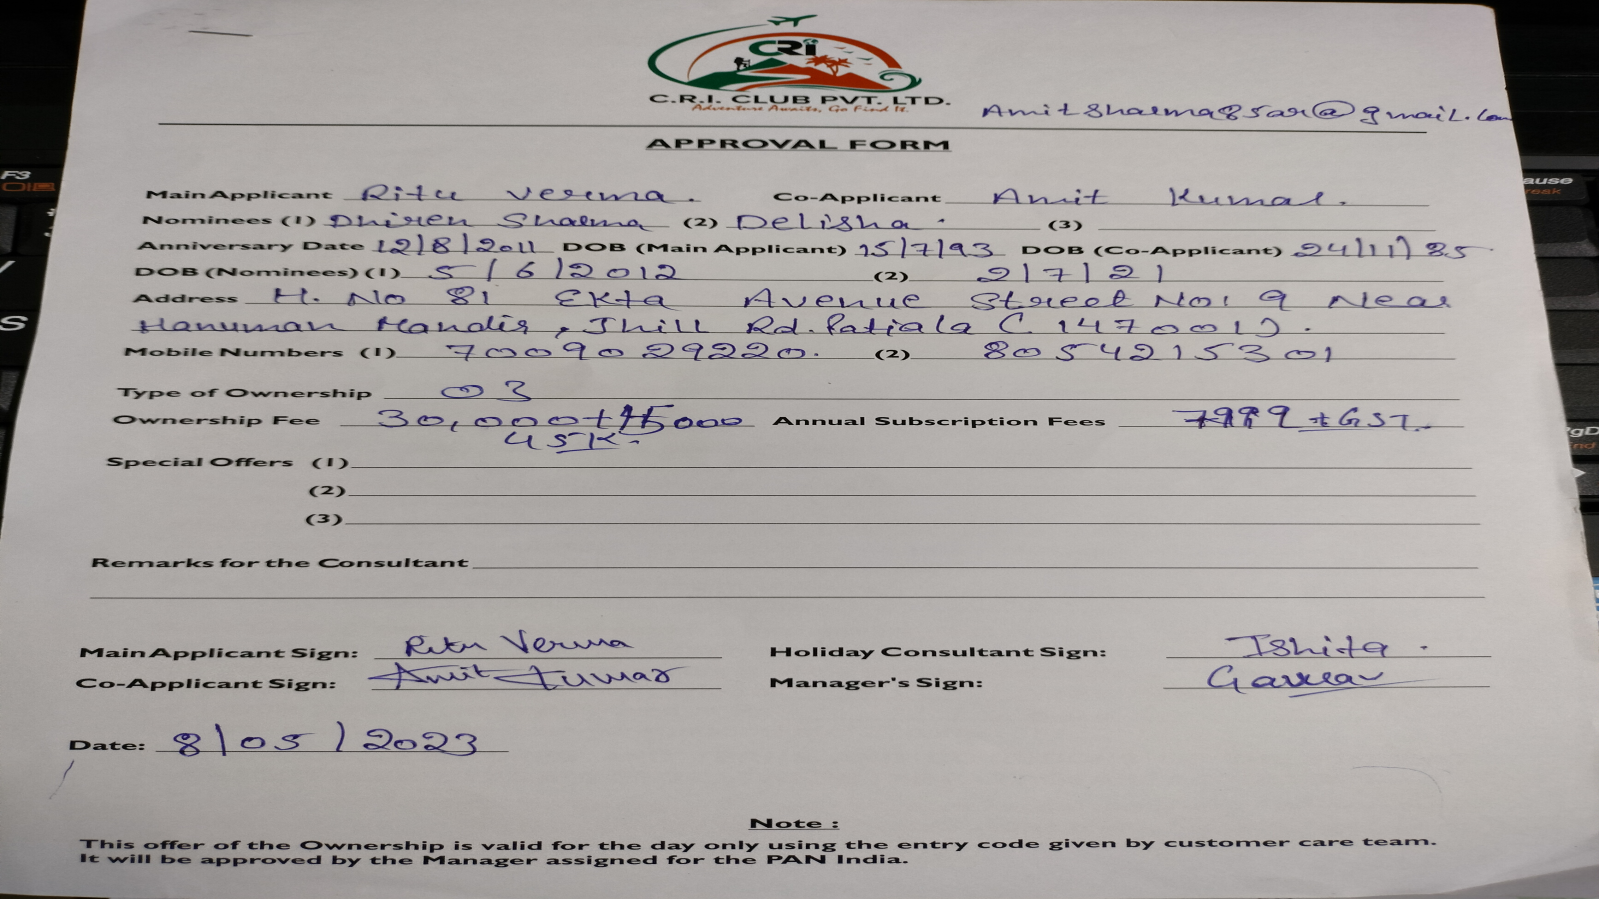 CRi
C.R.I. CLUB PVT. LTD.
Adventure Awaits, Go Find It.
AmitSharma85ar@gmail.com
APPROVAL FORM
Main Applicant Ritu Verma. Co-Applicant Amit Kumar.
Nominees (1) Dhiren Sharma (2) Delisha. (3)
Anniversary Date 12/8/2011 DOB (Main Applicant) 15/7/93 DOB (Co-Applicant) 24/11/85
DOB (Nominees) (1) 5/6/2012 (2) 2/7/21
Address H. No 81 Ekta Avenue Street No: 9 Near
Hanuman Mandir, Jhill Rd. Patiala (147001).
Mobile Numbers (1) 7009029220. (2) 8054215301
Type of Ownership 03
Ownership Fee 30,000+15000 Annual Subscription Fees 7999 + GST.
45K.
Special Offers (1)
(2)
(3)
Remarks for the Consultant
Main Applicant Sign: Ritu Verma Holiday Consultant Sign: Ishita.
Co-Applicant Sign: Amit Kumar Manager's Sign: Gaurav
Date: 8/05/2023
Note :
This offer of the Ownership is valid for the day only using the entry code given by customer care team.
It will be approved by the Manager assigned for the PAN India.